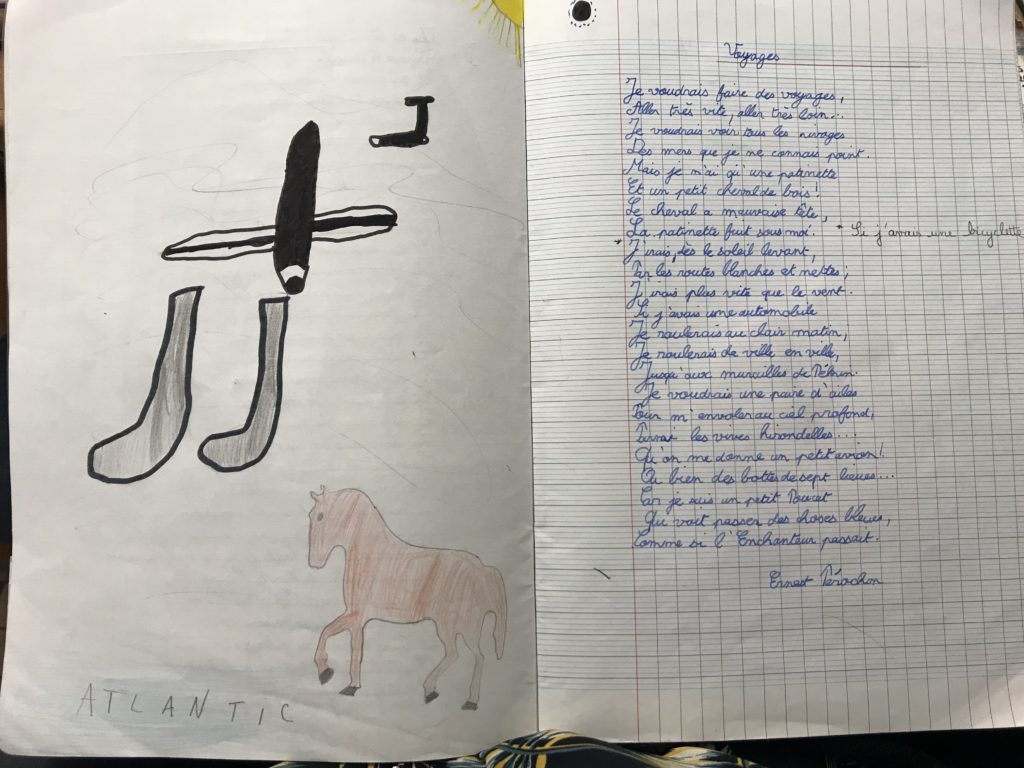 ATLANTIC
Voyages
Je voudrais faire des voyages,
Aller très vite, aller très loin...
Je voudrais voir tous les rivages
Des mers que je ne connais point.
Mais je n'ai qu'une patinette
Et un petit cheval de bois !
Le cheval a mauvaise tête,
La patinette fuit sous moi. * Si j'avais une bicyclette
* J'irais, dès le soleil levant,
Par les routes blanches et nettes,
J'irais plus vite que le vent.
Si j'avais une automobile
Je roulerais au clair matin,
Je roulerais de ville en ville,
Jusqu'aux murailles de Pékin.
Je voudrais une paire d'ailes
Pour m'envoler au ciel profond,
les vives hirondelles...
Qu'on me donne un petit avion !
Ou bien des bottes de sept lieues...
Car je suis un petit Poucet
Qui voit passer des choses bleues,
Comme si l'Enchanteur passait.
Ernest Pérochon